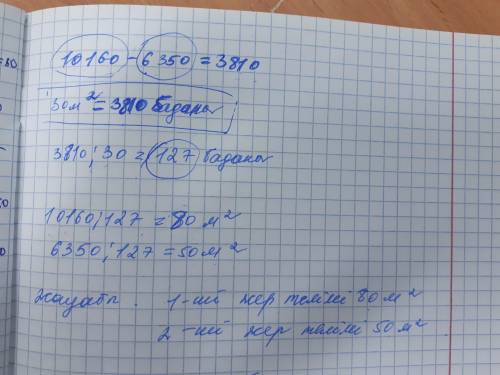 10160 - 6350 = 3810
30м² = 3810 бадана
3810 : 30 = 127 бадана
10160 : 127 = 80 м²
6350 : 127 = 50 м²
Жауабы. 1-ші жер телімі 80 м²
2-ші жер телімі 50 м²